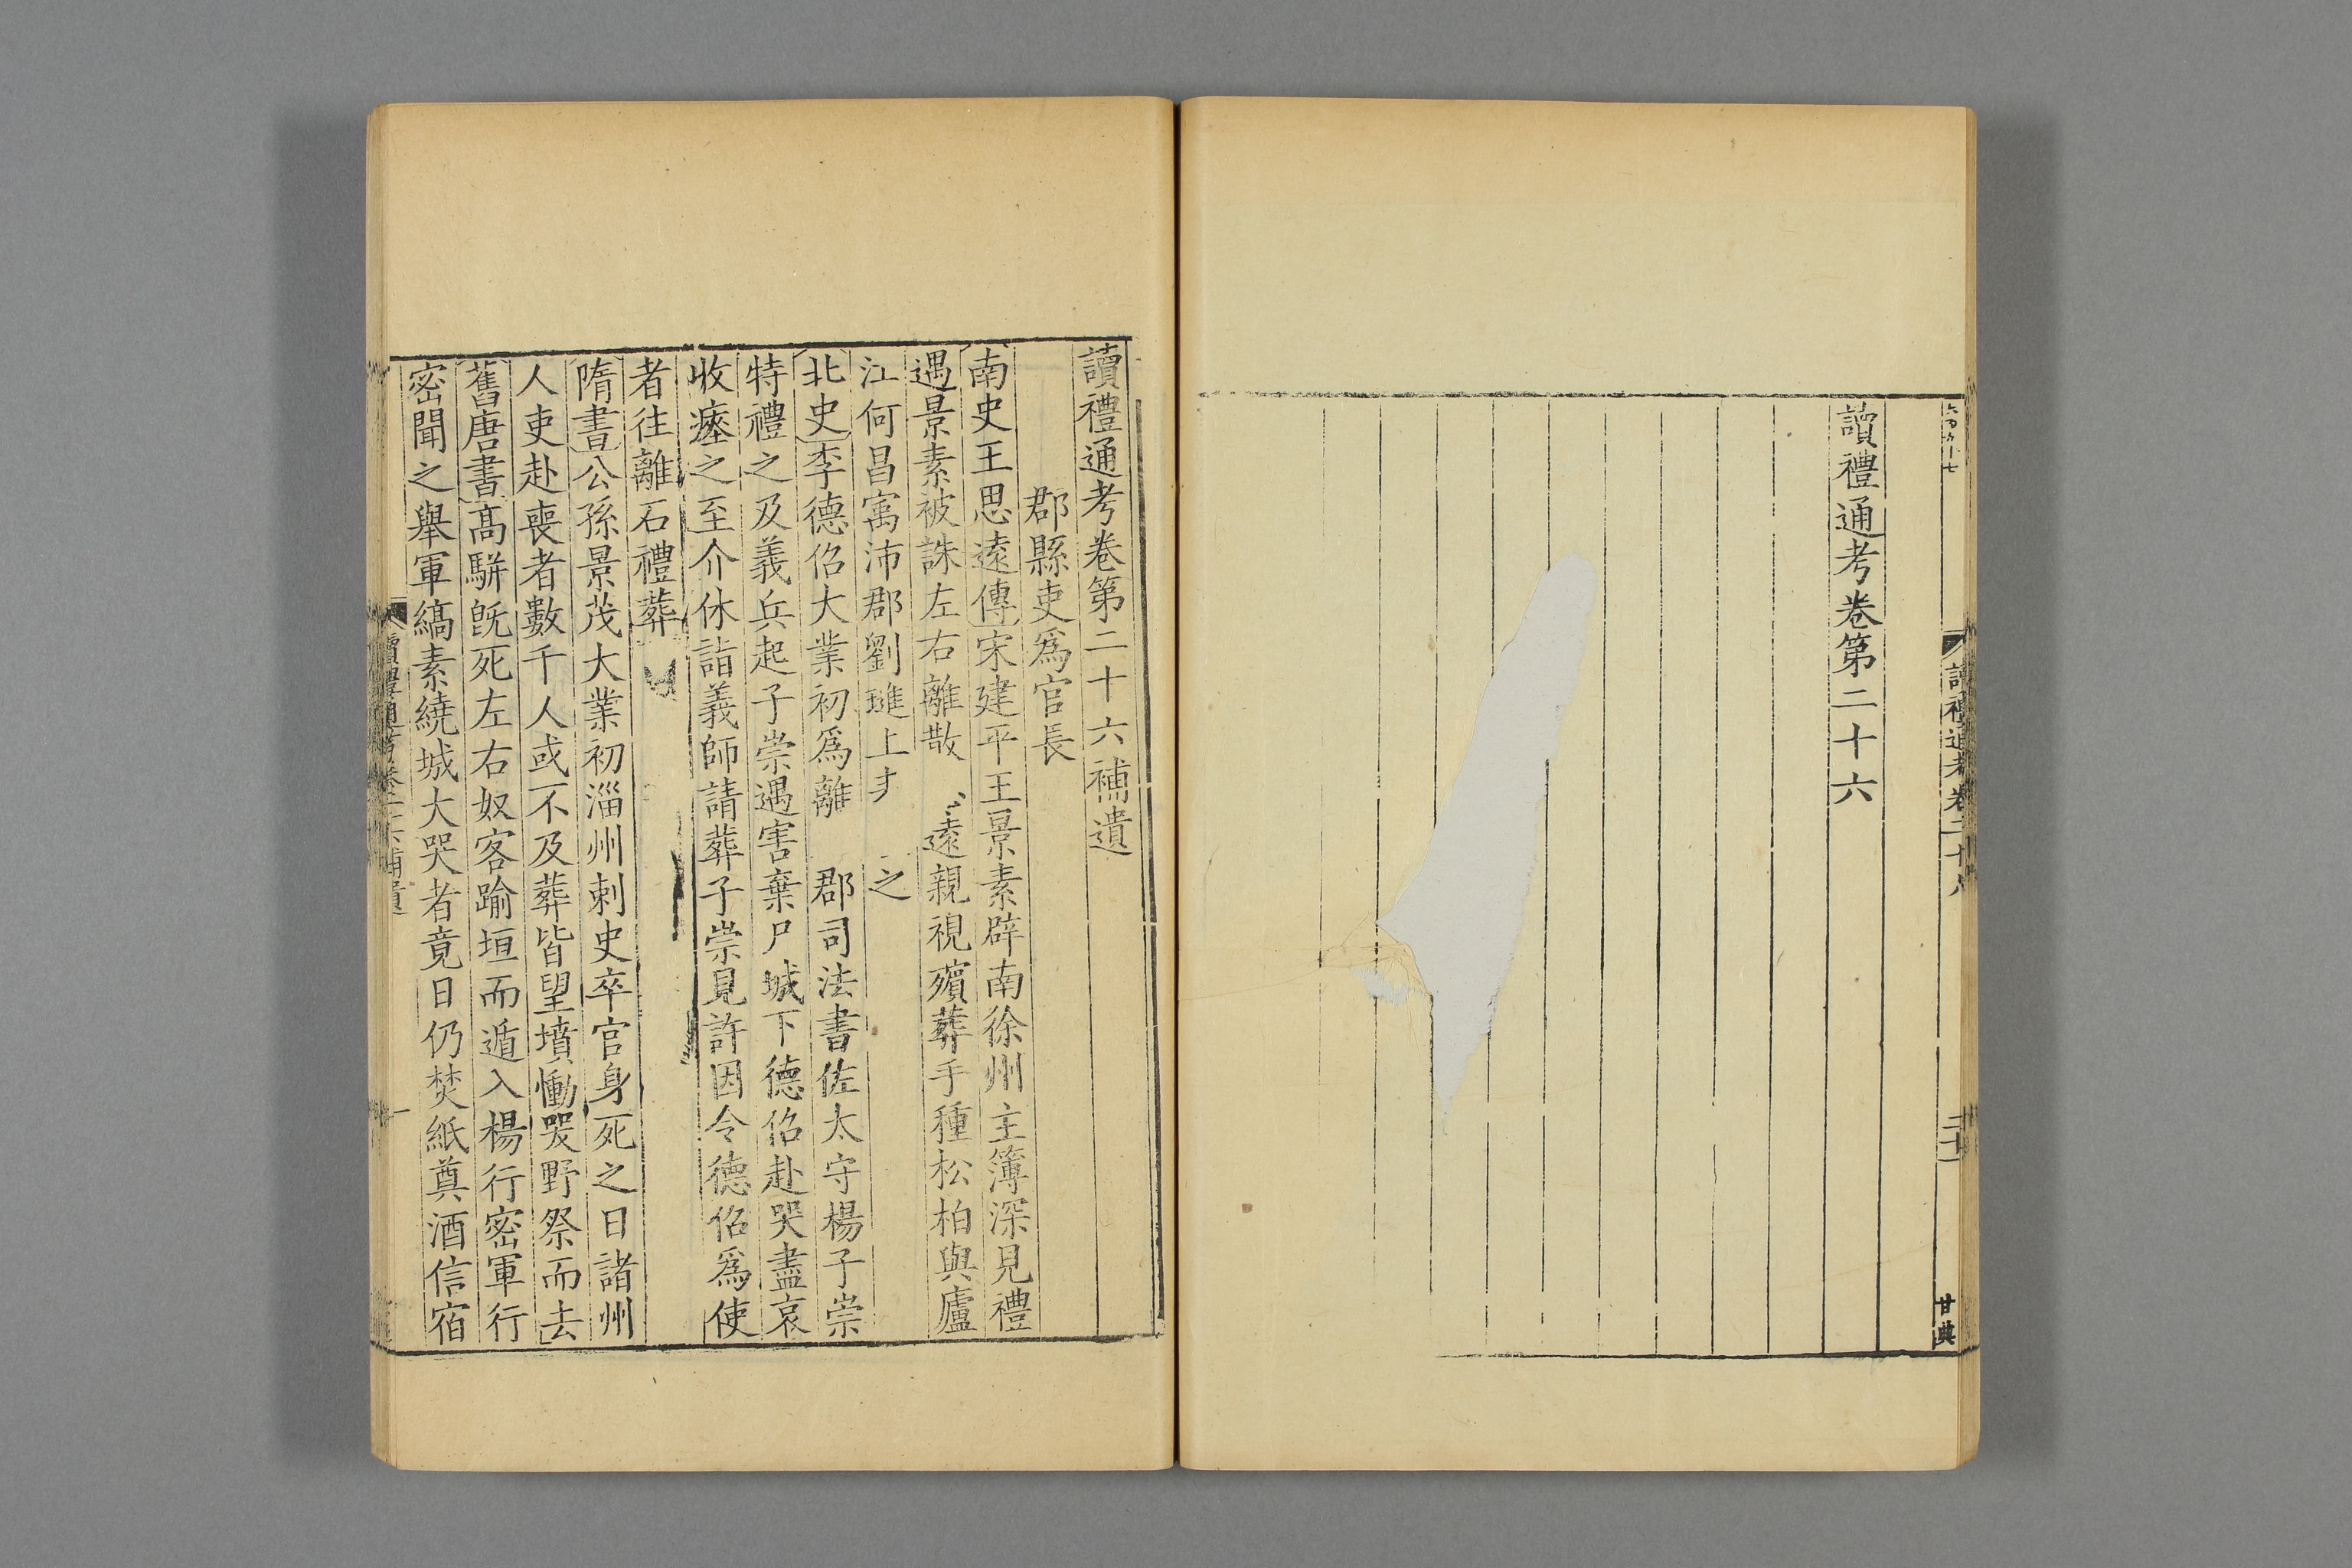 讀禮通考卷第二十六
甘典
讀禮通考卷第二十六補遺
郡縣吏爲官長
南史王思遠傳宋建平王景素辟南徐州主簿深見禮
遇景素被誅左右離散遠親視殯葬手種松柏與廬
江何昌㝢沛郡劉璡上之
北史李德侶大業初爲離郡司法書佐太守楊子崇
特禮之及義兵起子崇遇害棄尸城下德侶赴哭盡哀
收瘞之至介休詣義師請葬子崇見許因令德侶爲使
者往離石禮葬
隋書公孫景茂大業初淄州刺史卒官身死之日諸州
人吏赴喪者數千人或不及葬皆望墳慟哭野祭而去
舊唐書高駢旣死左右奴客踰垣而遁入楊行密軍行
密聞之舉軍縞素繞城大哭者竟日仍焚紙奠酒信宿